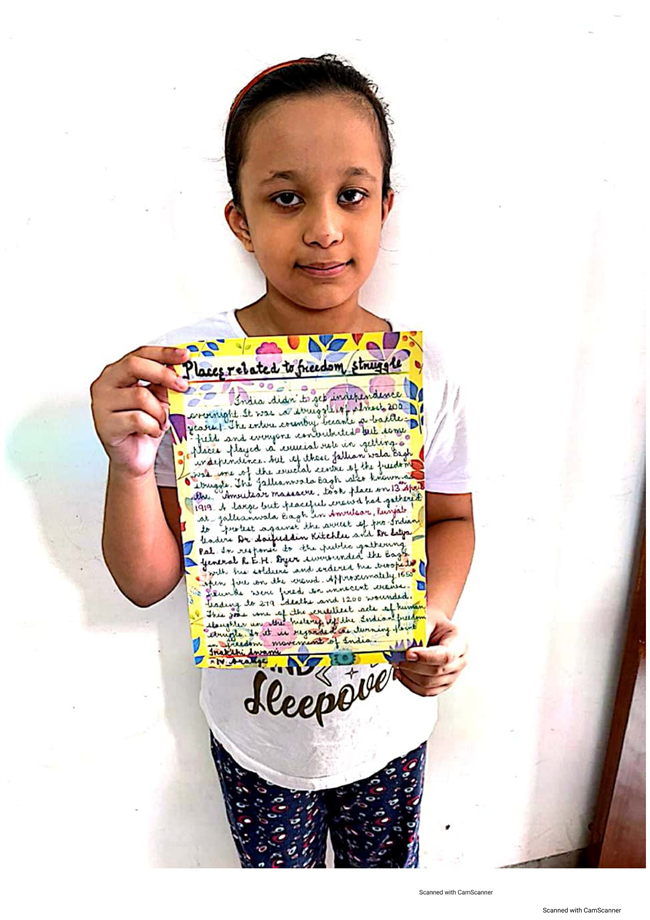 Places related to freedom struggle
India didn't get independence
overnight. It was a struggle of almost 200
years. The entire country became a battle-
field and everyone contributed but some
places played a crucial role in getting
independence. Out of these Jallian wala Bagh
was one of the crucial centre of the freedom
struggle. The Jallianwala Bagh also known as
the Amritsar massacre, took place on 13 April
1919. A large but peaceful crowd had gathered
at Jallianwala Bagh in Amritsar, Punjab
to protest against the arrest of pro-Indian
leaders Dr Saifuddin Kitchlu and Dr Satya
Pal. In response to the public gathering
General R.E.H. Dyer surrounded the Bagh
with his soldiers and ordered his troop to
open fire on the crowd. Approximately 1650
rounds were fired on innocent
leading to 279 deaths and 1200 wounded.
This was one of the cruellest acts of human
slaughter in the history of the Indian freedom
struggle. So it is regarded as turning point
in freedom movement of India.
Swami
IV
Sleepover
Scanned with CamScanner
Scanned with CamScanner